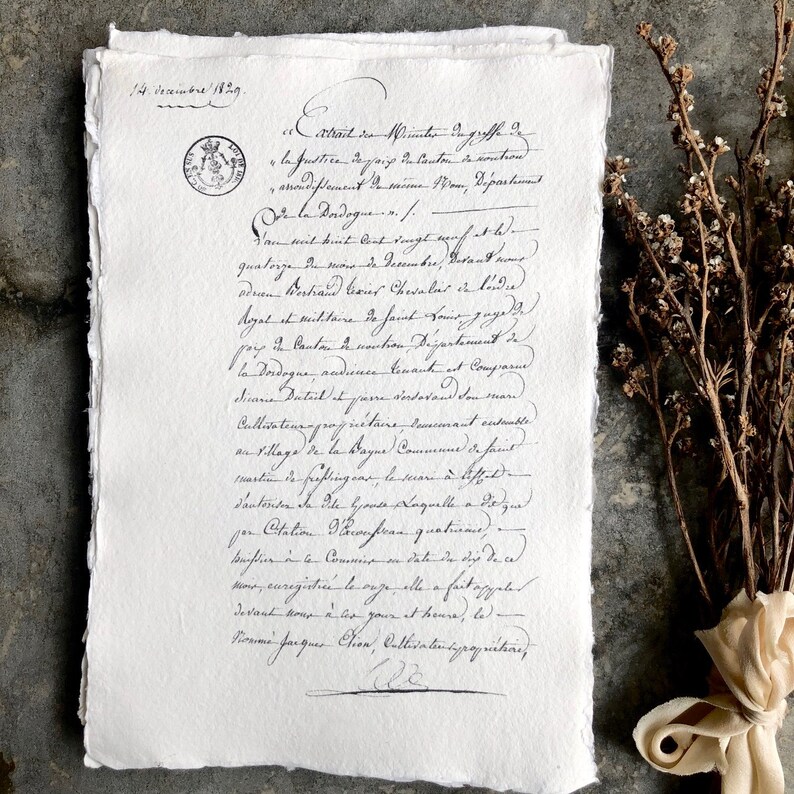 14. decembre 1829.
LOI DE 1816
« Extrait des Minutes du greffe de
« la Justice de paix du Canton de nontron
« arrondissement du même Nom, Département
de la Dordogne. » /. —
L'an mil huit cent vingt neuf et le
quatorze du mois de decembre, Devant nous
adrien Bertrand texier Chevalier de l'ordre
Royal et militaire de Saint Louis juge de
paix du Canton de nontron, Département de
la Dordogne, audience tenante est Comparue
Duteil et pierre versavaud son mari
Cultivateur-propriétaire, demeurant ensemble
au village de la Commune de Saint
martin de fressingeas le mari à l'effet
d'autoriser sa dite Epouse Laquelle a dit que
par Citation quatrieme,
huissier à ce Commis en date du dix de ce
mois, enregistrée le onze, elle a fait appeler
devant nous à ces jour et heure, le —
Nommé Jacques Cultivateur-propriétaire,